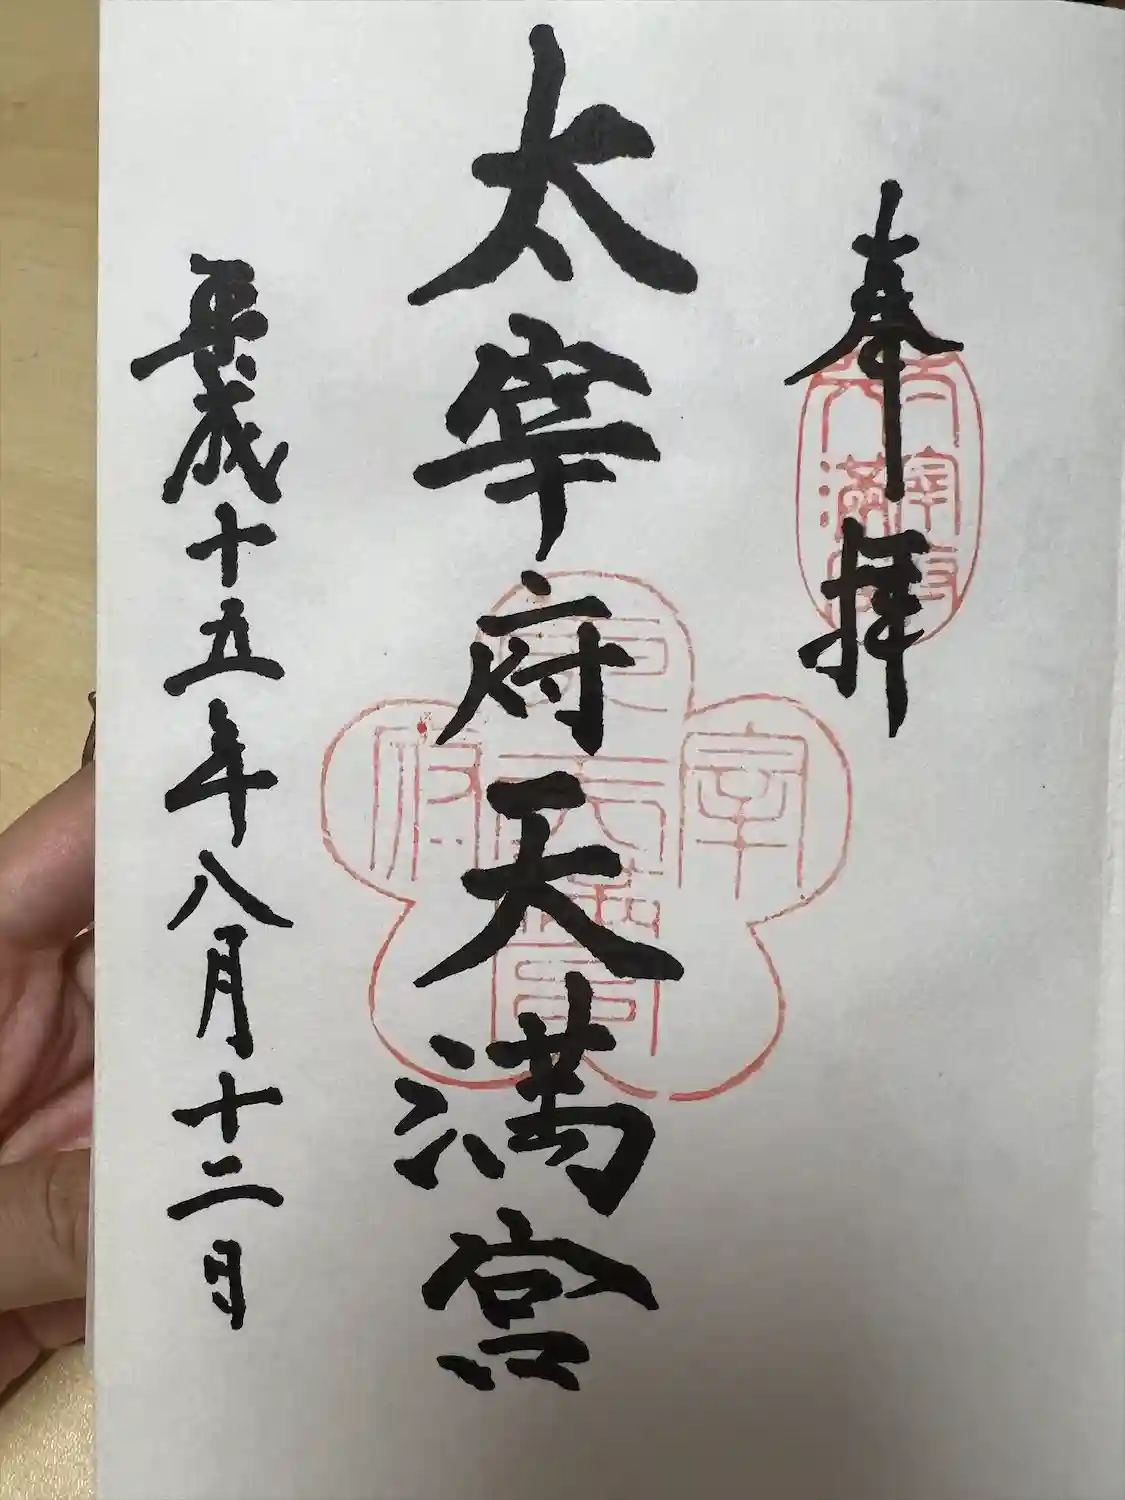 奉拝
太宰府天満宮
平成十五年八月十二日